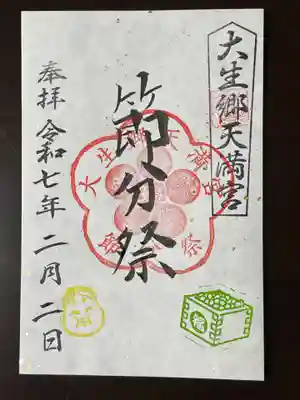 大生郷天満宮
節分祭
奉拝 令和七年 二月二日
大生郷天満宮
節分祭